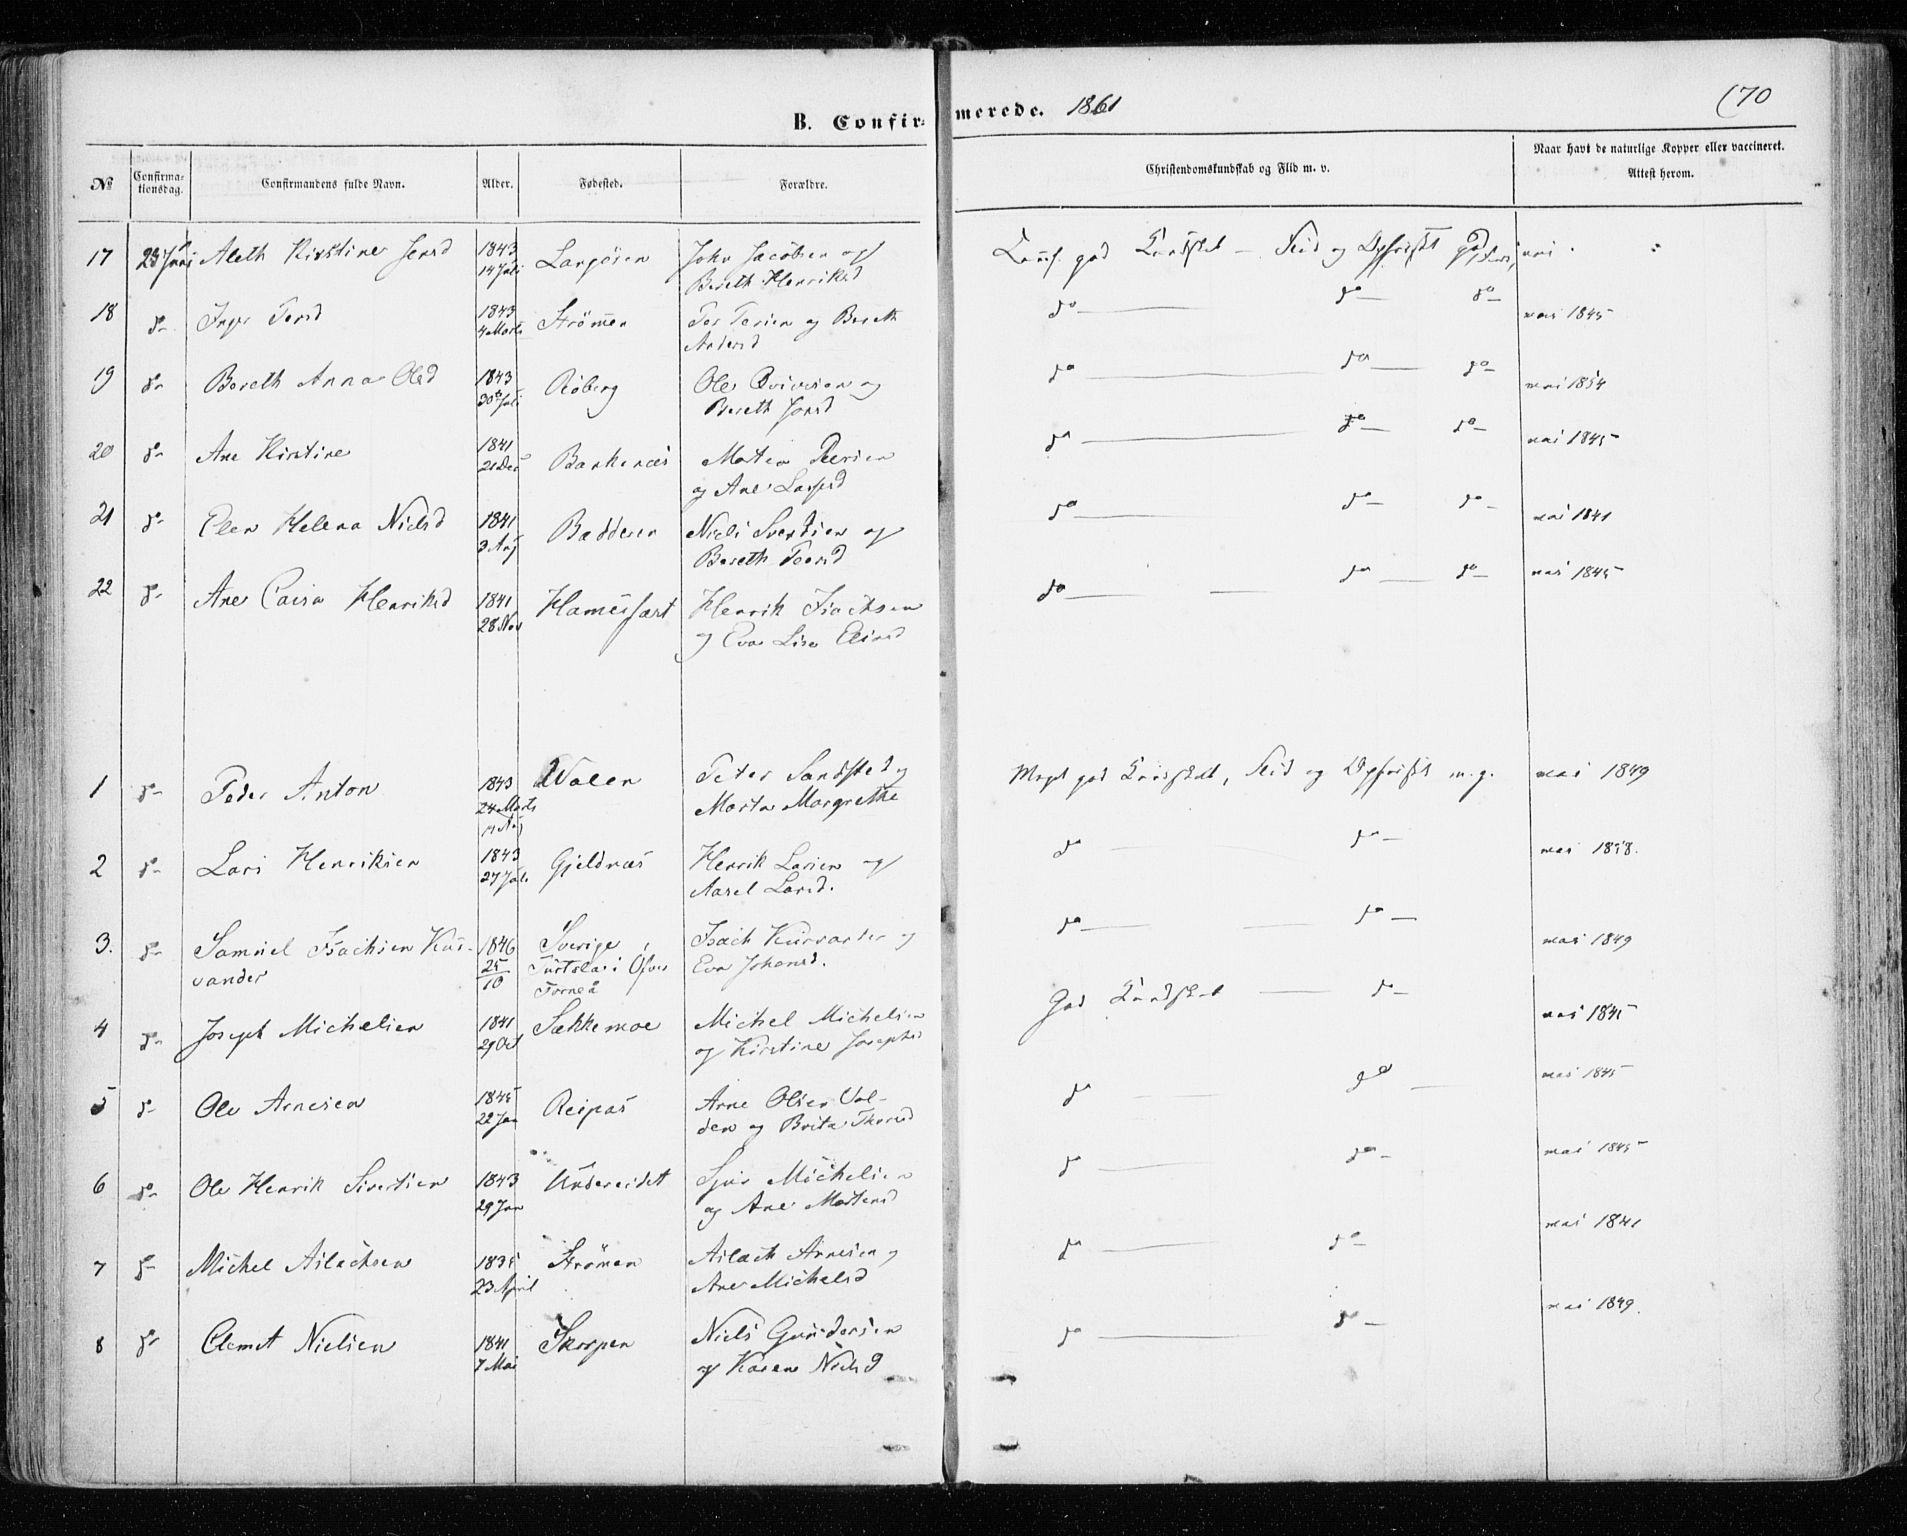 B. Confirmerede. 1861
170
№ Confirmationsdag. Confirmandens fulde Navn. Alder. Fødested. Forældre. Christendomskundskab og Flid m. v. Naar havt de naturlige Kopper eller vaccineret. Attest herom.
17 Aleth Kirstine Jensd 1843 14 Juli John Jacobsen og
Bereth Henriksd
18 do Inger Persd 1843 4 Marts Strömmen Per Persen og Bereth
Andersd do do do vac 1845
19 do Bereth Anna Olsd 1843 30 Juli Røberg Ole
Bereth Jonsd do do do vac 1854
20 do Ane Kirstine 1841 21 Dec Morten Persen
og Ane Larsd do do do vac 1845
21 do Elen Helena Nielsd 1841 3 Aug Badderen Niels Sivertsen og
Bereth Peersd do do do vac 1841
22 do Ane Caisa Henriksd 1841 28 Nov Hamerfæst Henrik Isachsen
og Eva Lisa do do do vac 1845
1 do Peder Anton 1843 24 Marts Peter Sandsted og
Marta Margrethe Meget god Kundskab, Flid og Opførsel m.g. vac 1849
2 do Lars Henriksen 1843 27 Juli Gjeldnæs Henrik Larsen og
Marel Larsd. do do
3. do Samuel Isachsen Kur-
vander 1846 25/10 Sverige
i Öfver
Torneå Isach Kurvander og
Eva Johansd. do do vac 1849
4 do Joseph Michelsen 1841 29 Oct Sækkemoe Michel Michelsen
og Kirstine Josephsd God Kundskab do vac 1845
5 do Ole Arnesen 1845 22 Jan Reipas Arne Olsen Val-
den og Brita Thoresd do do vac 1845
6 do Ole Henrik Sivertsen 1843 29 Jan Undereidet Michelsen
og Ane Mortensd do do vac 1845
7 do Michel Ailachsen 1835 23 April Strömen Ailach Arnesen og
Ane Michelsd do do vac 1841
8 do Clemet Nielsen 1841 7 Mai Skorpen Niels Gundersen
og Karen Nielsd do do vac 1849.